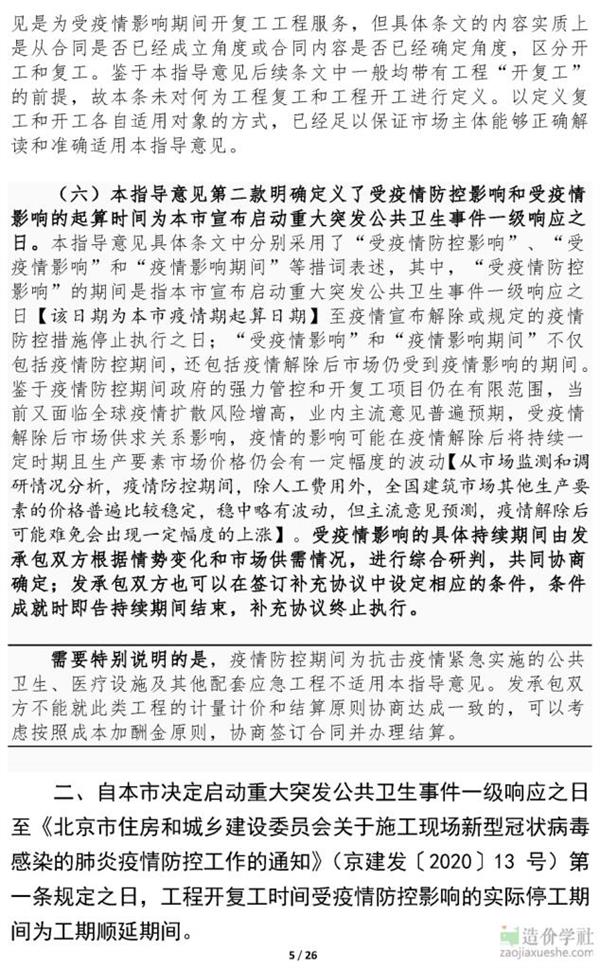 见是为受疫情影响期间开复工工程服务，但具体条文的内容实质上
是从合同是否已经成立角度或合同内容是否已经确定角度，区分开
工和复工。鉴于本指导意见后续条文中一般均带有工程“开复工”
的前提，故本条未对何为工程复工和工程开工进行定义。以定义复
工和开工各自适用对象的方式，已经足以保证市场主体能够正确解
读和准确适用本指导意见。
（六）本指导意见第二款明确定义了受疫情防控影响和受疫情
影响的起算时间为本市宣布启动重大突发公共卫生事件一级响应之
日。本指导意见具体条文中分别采用了“受疫情防控影响”、“受
疫情影响”和“疫情影响期间”等措词表述，其中，“受疫情防控
影响”的期间是指本市宣布启动重大突发公共卫生事件一级响应之
日【该日期为本市疫情期起算日期】至疫情宣布解除或规定的疫情
防控措施停止执行之日；“受疫情影响”和“疫情影响期间”不仅
包括疫情防控期间，还包括疫情解除后市场仍受到疫情影响的期间。
鉴于疫情防控期间政府的强力管控和开复工项目仍在有限范围，当
前又面临全球疫情扩散风险增高，业内主流意见普遍预期，受疫情
解除后市场供求关系影响，疫情的影响可能在疫情解除后将持续一
定时期且生产要素市场价格仍会有一定幅度的波动【从市场监测和调
研情况分析，疫情防控期间，除人工费用外，全国建筑市场其他生产要
素的价格普遍比较稳定，稳中略有波动，但主流意见预测，疫情解除后
可能难免会出现一定幅度的上涨】。受疫情影响的具体持续期间由发
承包双方根据情势变化和市场供需情况，进行综合研判，共同协商
确定；发承包双方也可以在签订补充协议中设定相应的条件，条件
成就时即告持续期间结束，补充协议终止执行。
需要特别说明的是，疫情防控期间为抗击疫情紧急实施的公共
卫生、医疗设施及其他配套应急工程不适用本指导意见。发承包双
方不能就此类工程的计量计价和结算原则协商达成一致的，可以考
虑按照成本加酬金原则，协商签订合同并办理结算。
二、自本市决定启动重大突发公共卫生事件一级响应之日
至《北京市住房和城乡建设委员会关于施工现场新型冠状病毒
感染的肺炎疫情防控工作的通知》（京建发〔2020〕13 号）第
一条规定之日，工程开复工时间受疫情防控影响的实际停工期
间为工期顺延期间。
5 / 26
造价学社
zaojiaxueshe.com